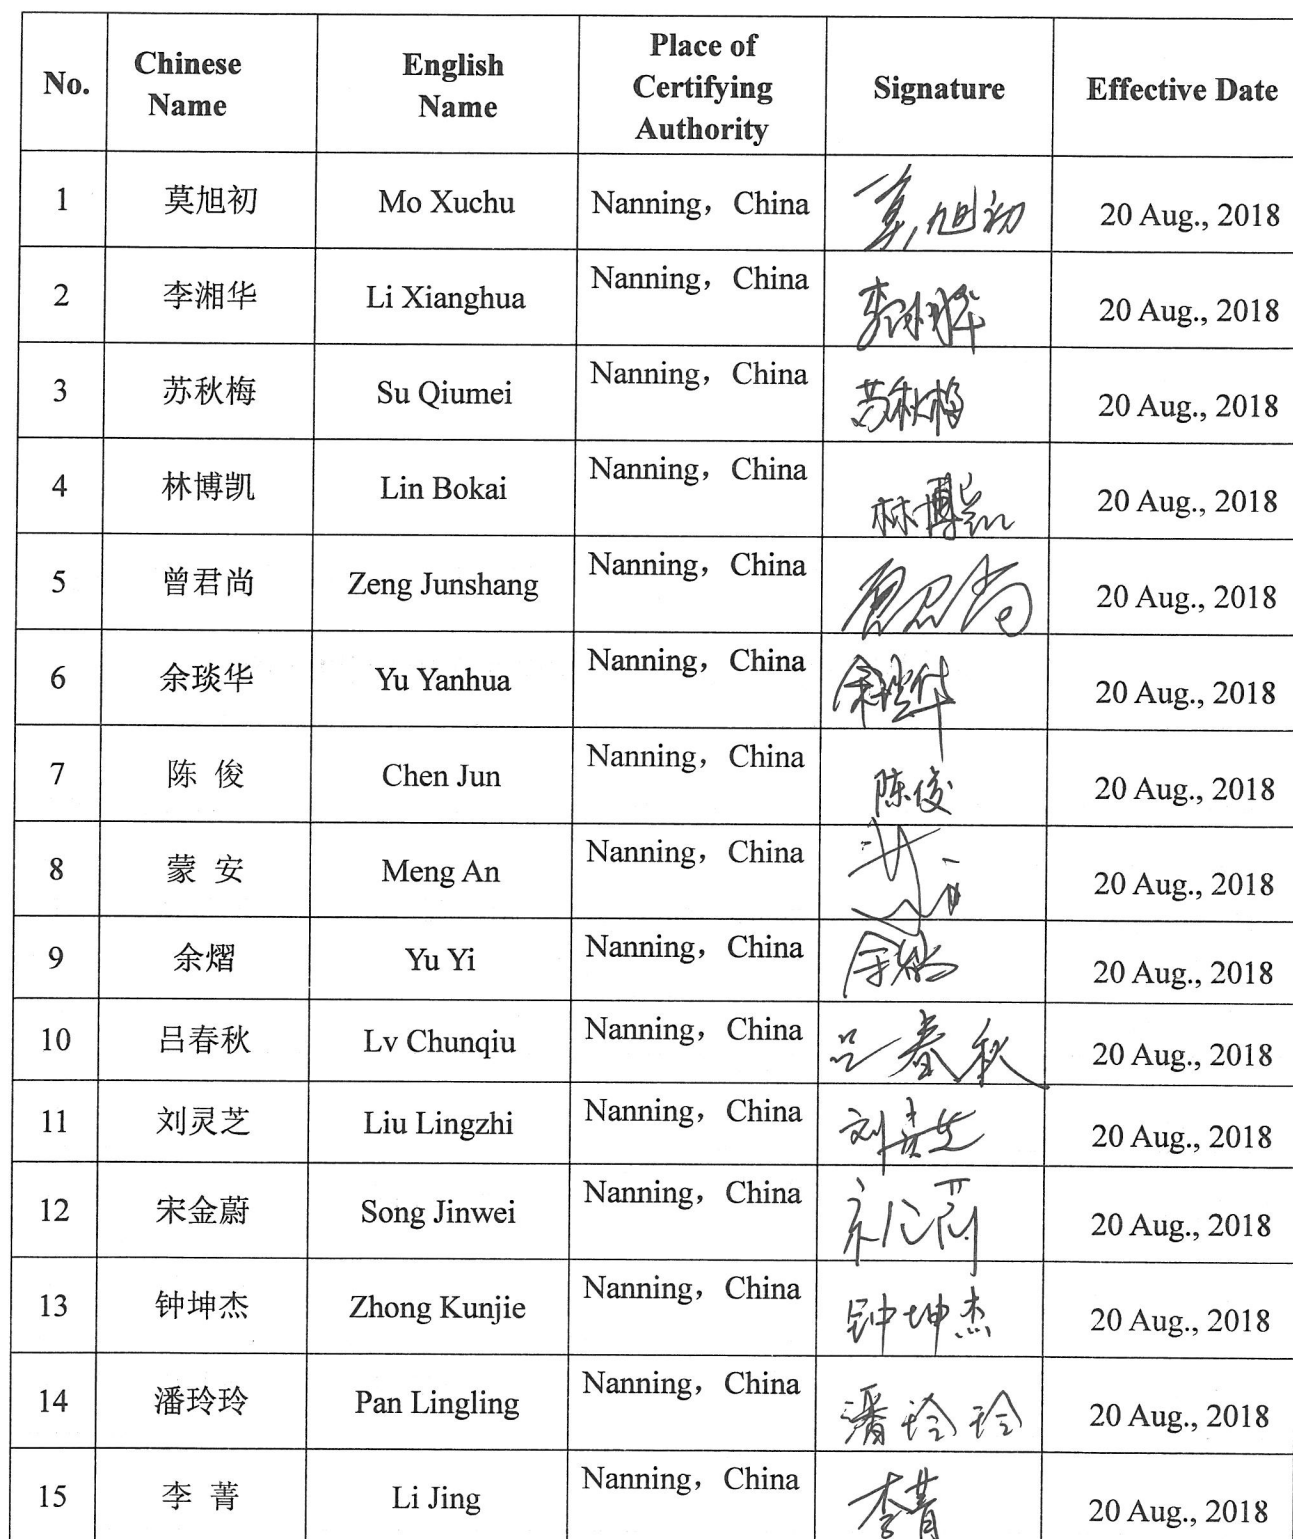 No. Chinese Name English Name Place of Certifying Authority Signature Effective Date
1 莫旭初 Mo Xuchu Nanning，China 莫旭初 20 Aug., 2018
2 李湘华 Li Xianghua Nanning，China 李湘华 20 Aug., 2018
3 苏秋梅 Su Qiumei Nanning，China 苏秋梅 20 Aug., 2018
4 林博凯 Lin Bokai Nanning，China 林博凯 20 Aug., 2018
5 曾君尚 Zeng Junshang Nanning，China 20 Aug., 2018
6 余琰华 Yu Yanhua Nanning，China 余琰华 20 Aug., 2018
7 陈 俊 Chen Jun Nanning，China 陈俊 20 Aug., 2018
8 蒙 安 Meng An Nanning，China 20 Aug., 2018
9 余熠 Yu Yi Nanning，China 余熠 20 Aug., 2018
10 吕春秋 Lv Chunqiu Nanning，China 吕春秋 20 Aug., 2018
11 刘灵芝 Liu Lingzhi Nanning，China 刘灵芝 20 Aug., 2018
12 宋金蔚 Song Jinwei Nanning，China 20 Aug., 2018
13 钟坤杰 Zhong Kunjie Nanning，China 钟坤杰 20 Aug., 2018
14 潘玲玲 Pan Lingling Nanning，China 潘玲玲 20 Aug., 2018
15 李 菁 Li Jing Nanning，China 李菁 20 Aug., 2018